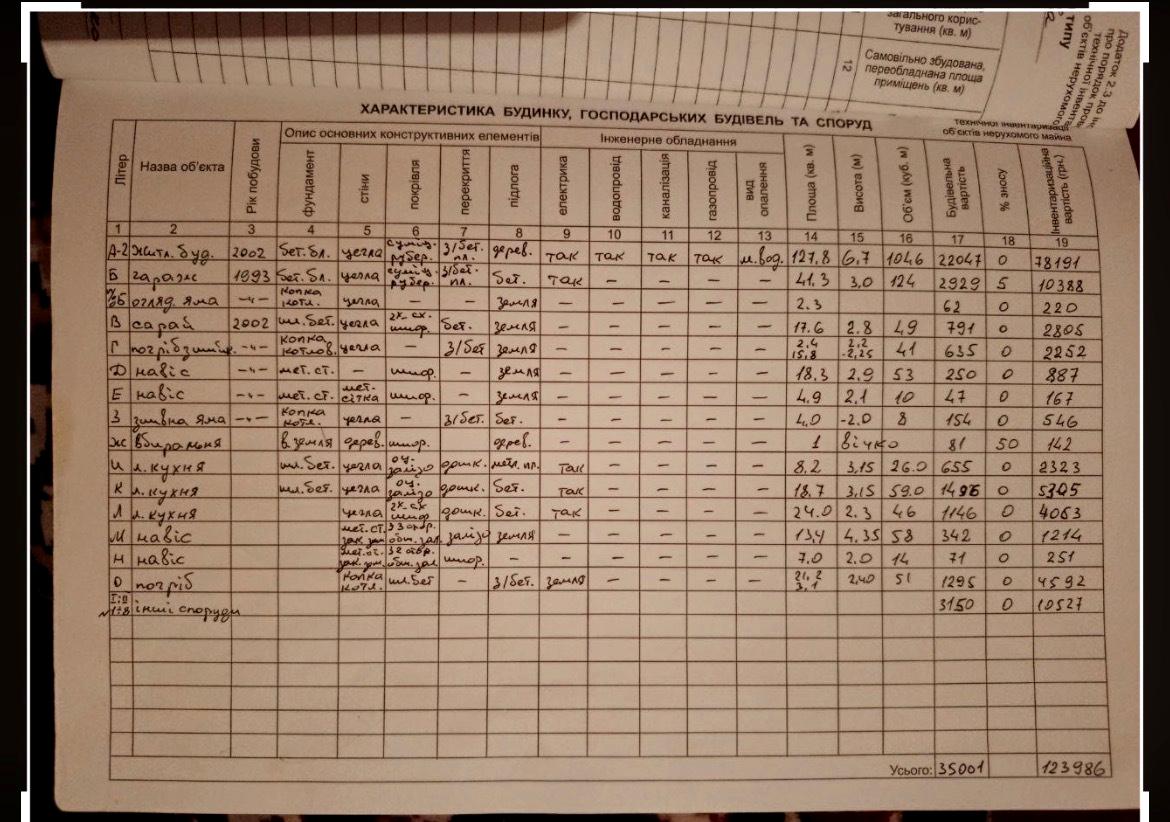 загального корис-
тування (кв. м)
12
Самовільно збудована,
переобладнана площа
приміщень (кв. м)
типу
Додаток 2.3 до
про порядок
технічної
об'єктів нерухомого
ХАРАКТЕРИСТИКА БУДИНКУ, ГОСПОДАРСЬКИХ БУДІВЕЛЬ ТА СПОРУД
технічної інвентаризації
об'єктів нерухомого майна
Літер Назва об'єкта Рік побудови Опис основних конструктивних елементів Інженерне обладнання Площа (кв. м) Висота (м) Об'єм (куб. м) Будівельна вартість % зносу Інвентаризаційна вартість (грн.)
фундамент стіни покрівля перекриття підлога електрика водопровід каналізація газопровід вид опалення
1 2 3 4 5 6 7 8 9 10 11 12 13 14 15 16 17 18 19
А-2 житл. буд. 2002 бет.бл. цегла суміщ. рубер. з/бет. пл. дерев. так так так так м.вод. 127,8 6,7 1046 22047 0 78191
Б гараж 1993 бет.бл. цегла суміщ. рубер. з/бет. пл. бет. так – – – – 41,3 3,0 124 2929 5 10388
огляд. яма –"– копка котл. цегла – – земля – – – – – 2.3 62 0 220
В сарай 2002 шл.бет. цегла 2х.сх. шиф. бет. земля – – – – – 17.6 2.8 49 791 0 2805
Г –"– копка котлов. цегла – з/бет земля – – – – – 2,4 15,8 2,2 -2,25 41 635 0 2252
Д навіс –"– мет.ст. – шиф. – земля – – – – – 18.3 2,9 53 250 0 887
Е навіс –"– мет.ст. мет. сітка шиф. – земля – – – – – 4.9 2,1 10 47 0 167
З зливна яма –"– копка котл. цегла – з/бет. бет. – – – – – 4,0 -2.0 8 154 0 546
Ж вбиральня в земля дерев. шиф. дерев. – – – – – 1 вічко 81 50 142
И л.кухня шл.бет. цегла оц. залізо дошк. метл.пл. так – – – – 8,2 3,15 26.0 655 0 2323
К л.кухня шл.бет. цегла оц. залізо дошк. бет. так – – – – 18.7 3,15 59.0 1496 0 5305
Л л.кухня цегла 2х.сх шиф дошк. бет. так – – – – 24.0 2.3 46 1146 0 4063
М навіс мет.ст. залізо земля – – – – – 13,4 4.35 58 342 0 1214
Н навіс мет.ст. шиф. – – – – – – 7.0 2.0 14 71 0 251
О погріб копка котл. шл.бет – з/бет. земля – – – – 21,2 3,1 2,40 51 1295 0 4592
інші споруди 3150 0 10527
Усього: 35001 123986